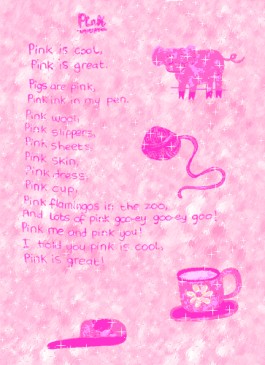 Pink
Pink is cool,
Pink is great.
Pigs are pink,
Pink ink in my pen.
Pink wool,
Pink slippers,
Pink sheets,
Pink skin,
Pink dress,
Pink cup,
Pink flamingos in the zoo,
And lots of pink goo-ey goo-ey goo!
Pink me and pink you!
I told you pink is cool,
Pink is great!